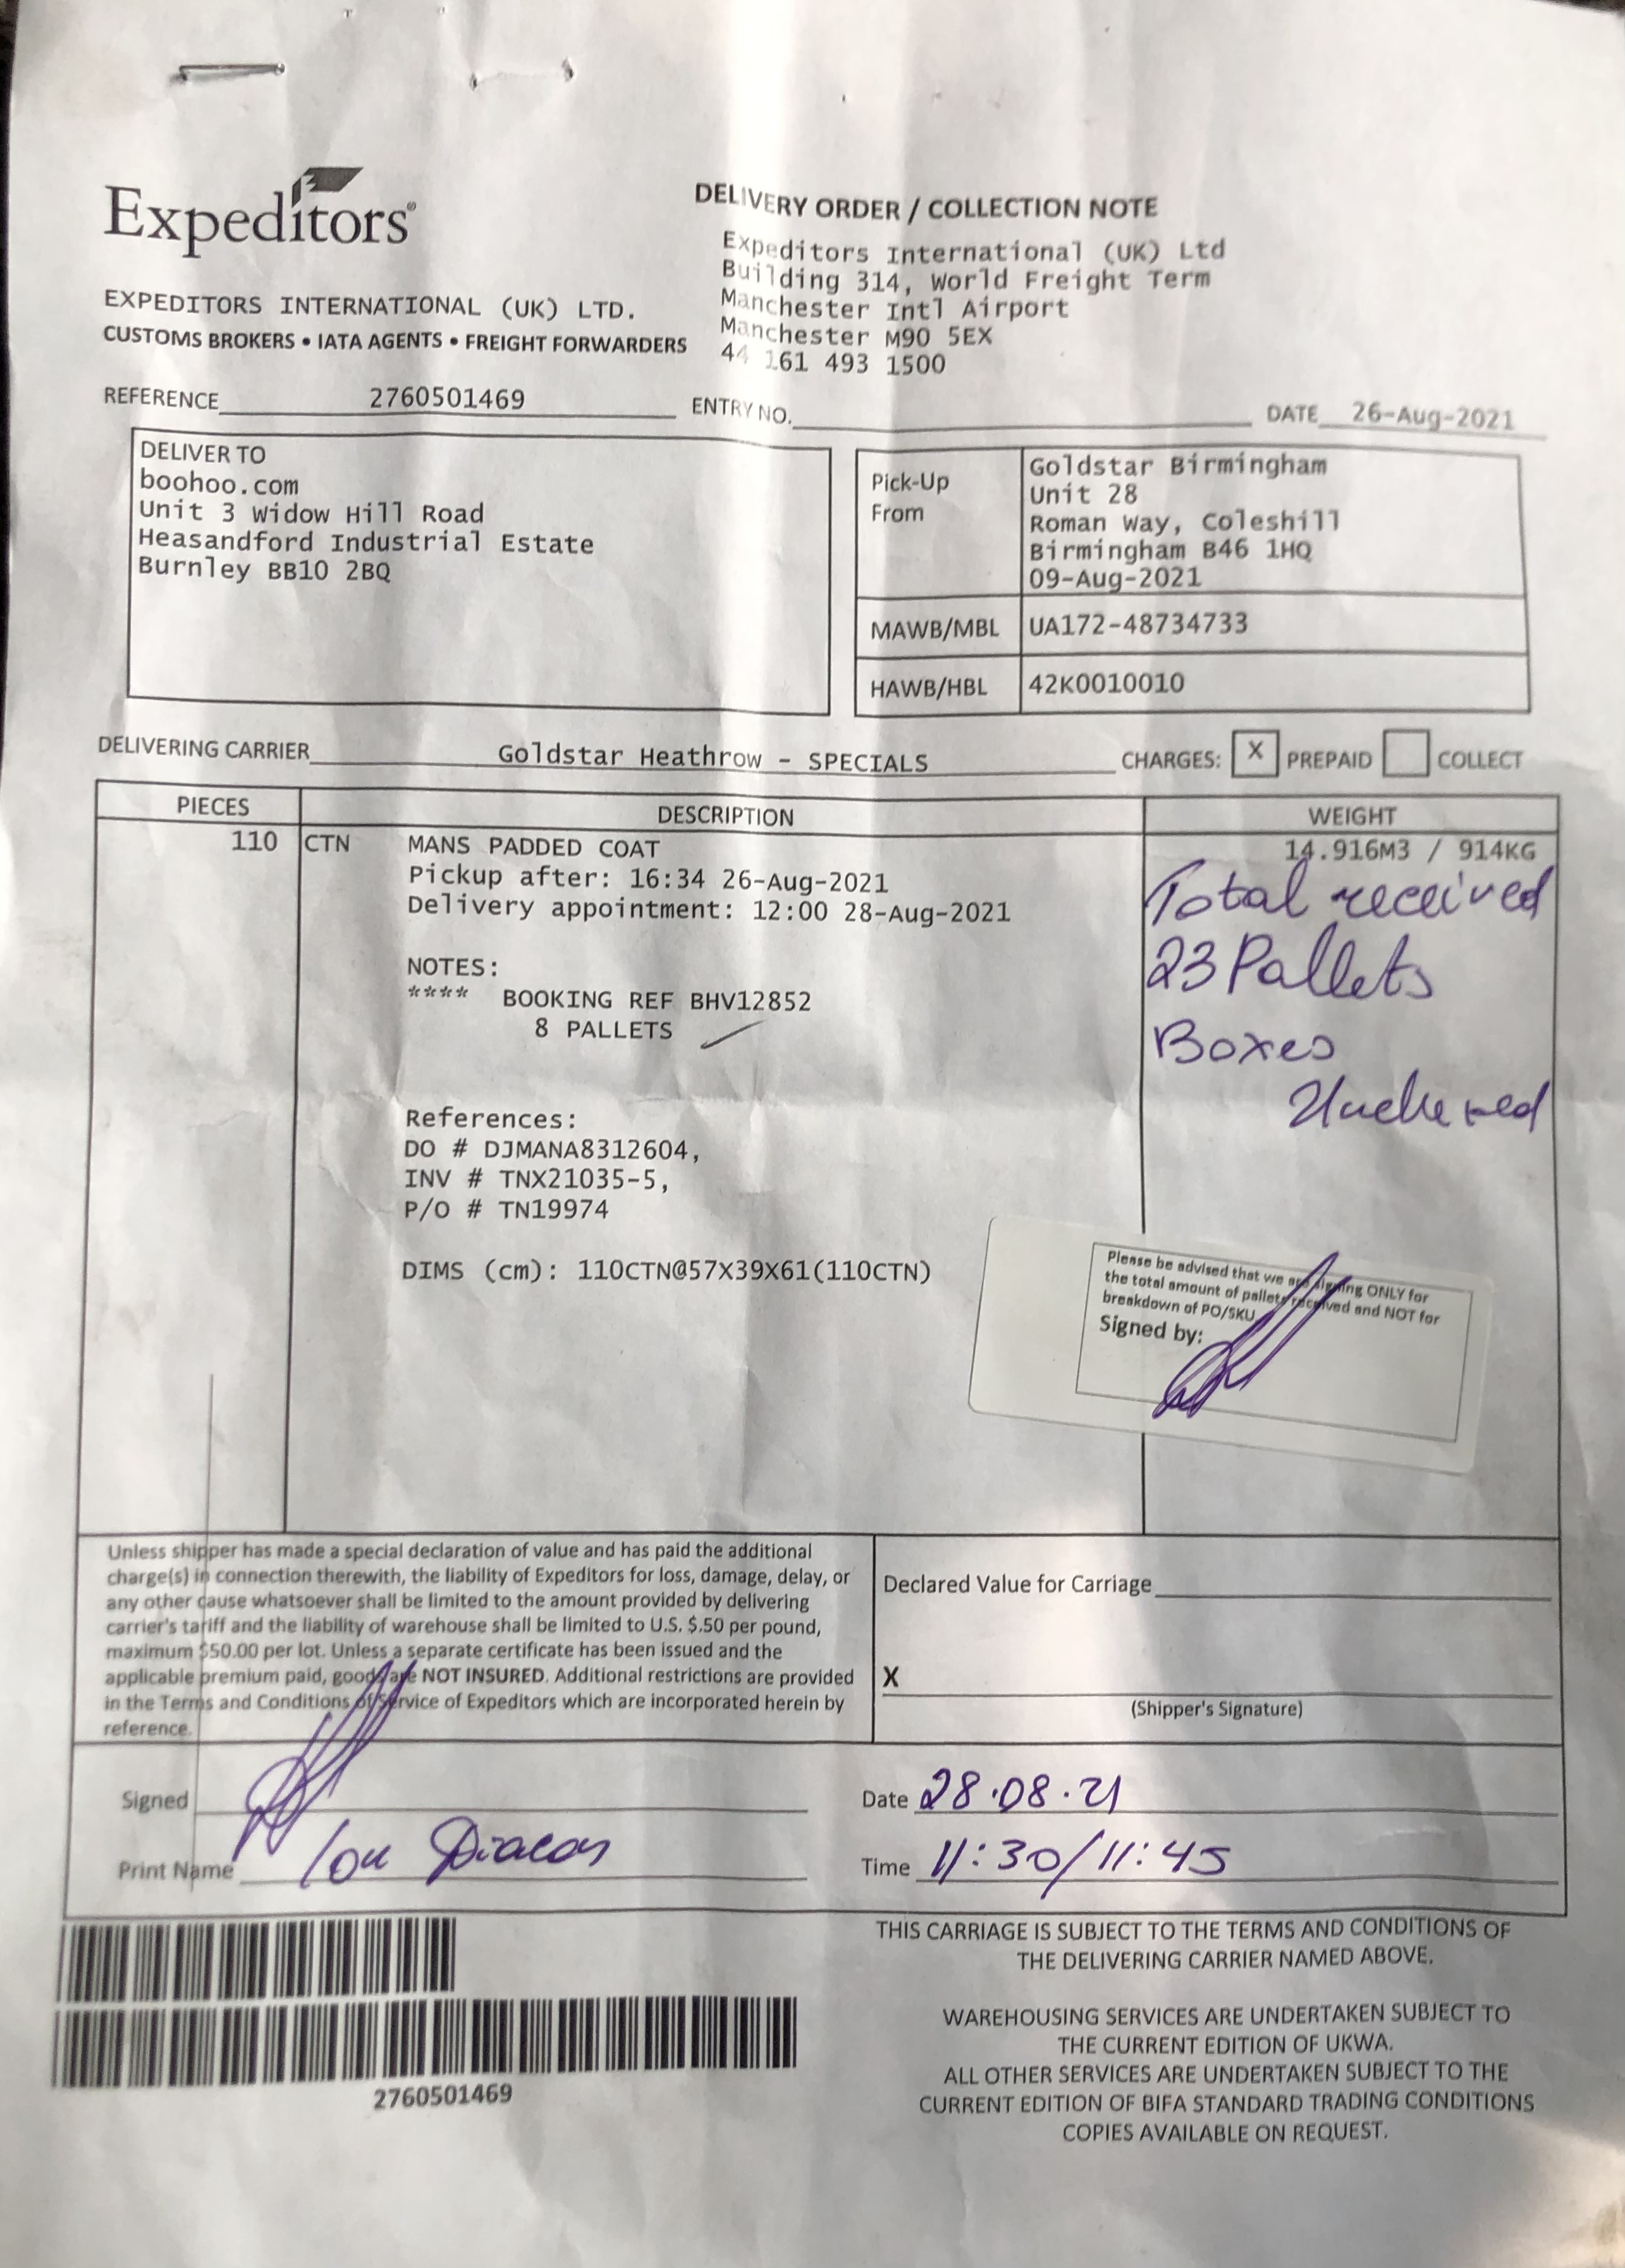 Expeditors®
DELIVERY ORDER / COLLECTION NOTE
Expeditors International (UK) Ltd
Building 314, World Freight Term
Manchester Intl Airport
Manchester M90 5EX
44 161 493 1500
EXPEDITORS INTERNATIONAL (UK) LTD.
CUSTOMS BROKERS • IATA AGENTS • FREIGHT FORWARDERS
REFERENCE 2760501469 ENTRY NO. DATE 26-Aug-2021
DELIVER TO
boohoo.com
Unit 3 Widow Hill Road
Heasandford Industrial Estate
Burnley BB10 2BQ
Pick-Up From
Goldstar Birmingham
Unit 28
Roman Way, Coleshill
Birmingham B46 1HQ
09-Aug-2021
MAWB/MBL UA172-48734733
HAWB/HBL 42K0010010
DELIVERING CARRIER Goldstar Heathrow - SPECIALS CHARGES: X PREPAID COLLECT
PIECES DESCRIPTION WEIGHT
110 CTN MANS PADDED COAT 14.916M3 / 914KG
Pickup after: 16:34 26-Aug-2021
Delivery appointment: 12:00 28-Aug-2021
NOTES:
**** BOOKING REF BHV12852
8 PALLETS
Total received
23 Pallets
Boxes
References:
DO # DJMANA8312604,
INV # TNX21035-5,
P/O # TN19974
DIMS (cm): 110CTN@57X39X61(110CTN)
Please be advised that we are signing ONLY for
the total amount of pallets received and NOT for
breakdown of PO/SKU
Signed by:
Unless shipper has made a special declaration of value and has paid the additional
charge(s) in connection therewith, the liability of Expeditors for loss, damage, delay, or
any other cause whatsoever shall be limited to the amount provided by delivering
carrier's tariff and the liability of warehouse shall be limited to U.S. $.50 per pound,
maximum $50.00 per lot. Unless a separate certificate has been issued and the
applicable premium paid, goods are NOT INSURED. Additional restrictions are provided
in the Terms and Conditions of Service of Expeditors which are incorporated herein by
reference.
Declared Value for Carriage
X
(Shipper's Signature)
Signed
Date 28.08.21
Print Name Ion Diacon
Time 11:30/11:45
2760501469
THIS CARRIAGE IS SUBJECT TO THE TERMS AND CONDITIONS OF
THE DELIVERING CARRIER NAMED ABOVE.
WAREHOUSING SERVICES ARE UNDERTAKEN SUBJECT TO
THE CURRENT EDITION OF UKWA.
ALL OTHER SERVICES ARE UNDERTAKEN SUBJECT TO THE
CURRENT EDITION OF BIFA STANDARD TRADING CONDITIONS
COPIES AVAILABLE ON REQUEST.